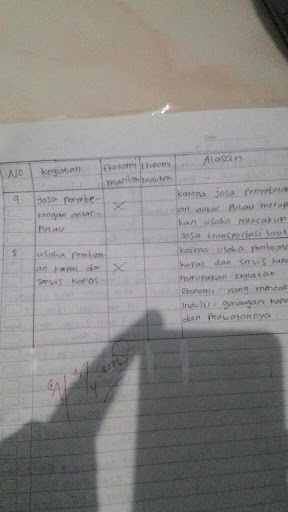 NO Kegiatan Ekonomi maritim Ekonomi Alasan
4 Jasa Penyebe-rangan antar-Pulau X karena Jasa Penyeberan an antar Pulau merup kan usaha mencakup Jasa transportasi laut
5 usaha pembuat-an kapal dan servis kapal X karena usaha pembuata kapal dan servis kapa merupakan kegiatan ekonomi yang mencak Industri galangan kapa dan Perawatannya